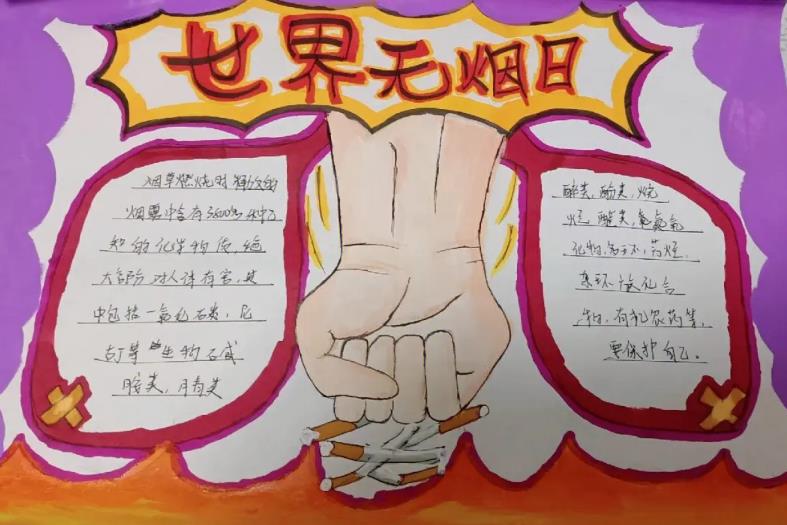 世界无烟日
烟草燃烧时释放的
烟雾中含有3800多种已
知的化学物质,绝
大部分对人体有害,其
中包括一氧化 类,尼
古丁等 生物
胺类,腈类
醇类,酚类,烷
烃,醛类,氮氧
化物, 环,芳烃,
杂环 化合
物,有机农药等,
要保护自己。